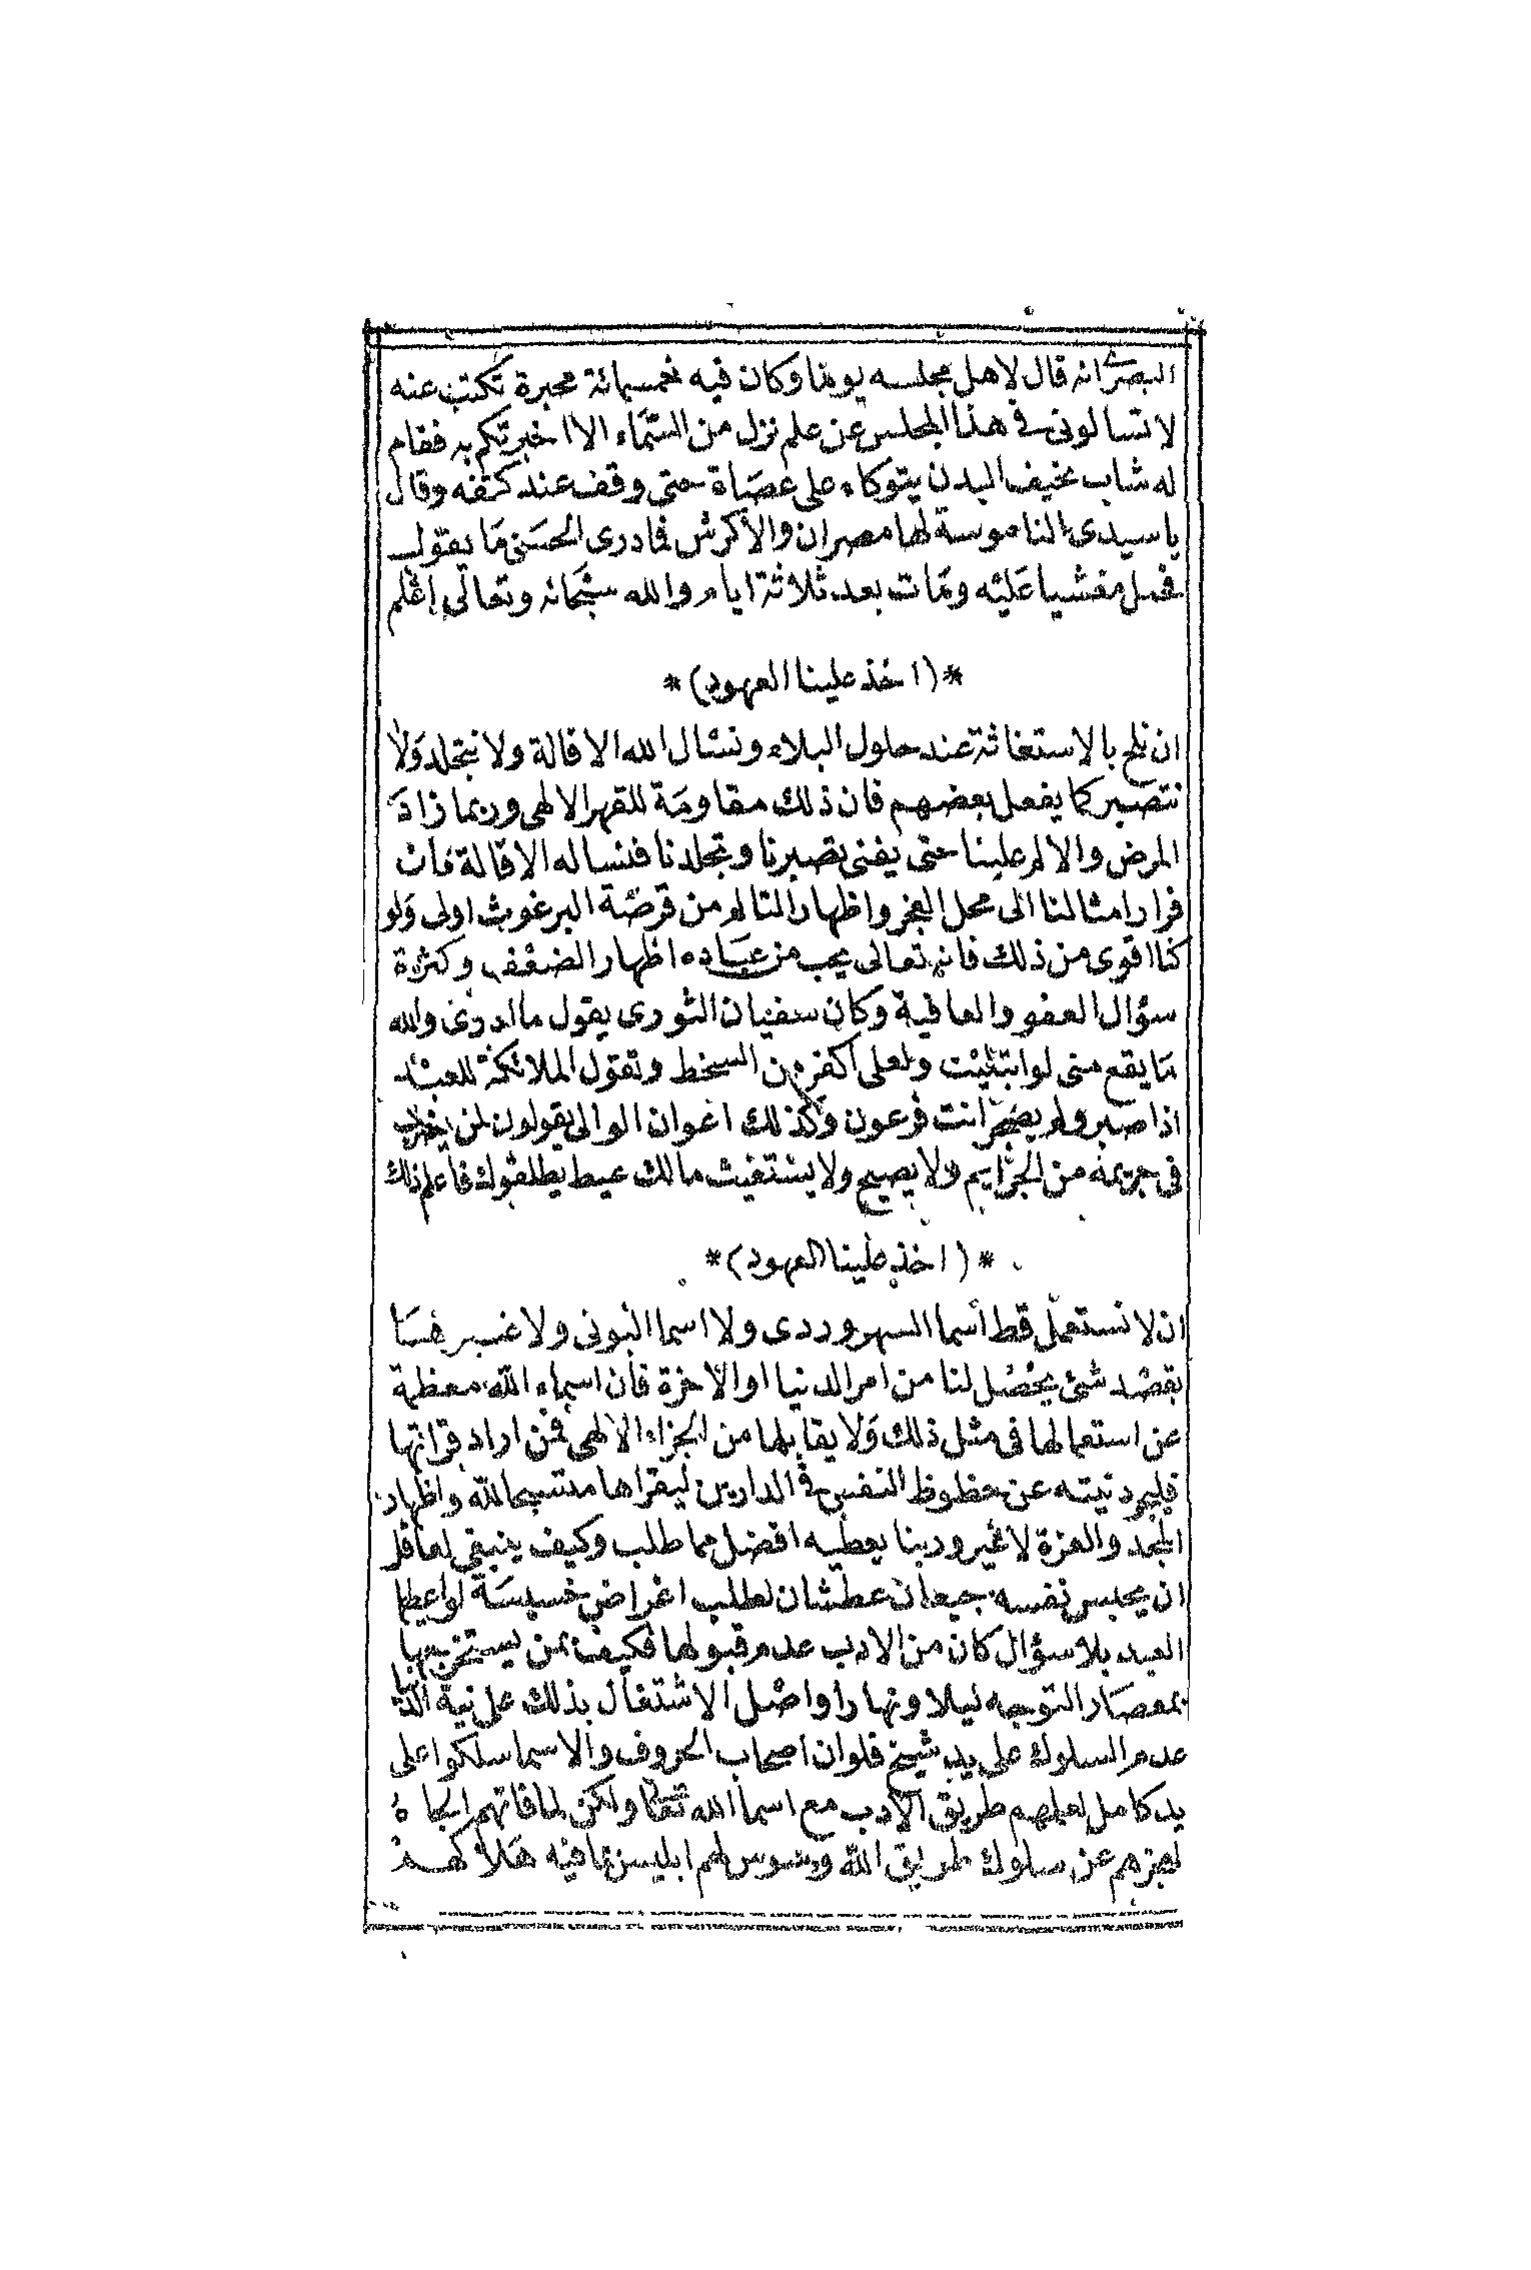 البصرى انه قال لاهل مجلسه يوما وكان فيه خمسمائة محبرة تكتب عنه
لا تسالونى فى هذا المجلس عن علم نزل من السماء الا اخبرتكم به فقام
له شاب نحيف البدن يتوكاء على عصاة حتى وقف عند كتفه وقال
يا سيدى الناموسة لها مصران والا كرش فما درى الحسن ما يقول
فحمل مغشيا عليه ومات بعد ثلاثة ايام والله سبحانه وتعالى اعلم
*(اخذ علينا العهود)*
ان نلح بالاستغاثة عند حلول البلاء ونسال الله الاقالة ولا نتجلد ولا
نتصبر كما يفعل بعضهم فان ذلك مقاومة للقهر الالهى وربما زاد
المرض والالم علينا حتى يفنى تصبرنا وتجلدنا فنساله الاقالة فان
فرار امثالنا الى محل العجز واظهار التالم من قرصة البرغوث اولى ولو
كنا اقوى من ذلك فانه تعالى يحب من عباده اظهار الضعف وكثرة
سؤال العفو والعافية وكان سفيان الثورى يقول ما ادرى والله
ما يقع منى لو ابتليت ولعلى اكفر من السخط وتقول الملائكة للعبد
اذا صبر ولم يضجر انت فرعون وكذلك اعوان الوالى يقولون لمن يضرب
فى جريمة من الجرايم ولا يصيح ولا يستغيث مالك عيط يطلقوك فاعلم ذلك
*(اخذ علينا العهود)*
ان لا نستعمل قط أسما السهروردى ولا اسما البونى ولا غيرهما
بقصد شئ يحصل لنا من امر الدنيا او الاخرة فان اسماء الله معظمة
عن استعمالها فى مثل ذلك ولا يقابلها من الجزاء الالهى فمن اراد قراتها
فليجرد نيته عن حظوظ النفس فى الدارين ليقراها الله واظهار
المجد والعزة لا غير وربنا يعطيه افضل مما طلب وكيف ينبغى لعاقل
ان يحبس نفسه جيعان عطشان لطلب اغراض خسيسة لو اعطيها
العبد بلا سؤال كان من الادب عدم قبولها فكيف بمن يستخرجها
التوجه ليلا ونهارا واصل الاشتغال بذلك على نية الدنيا
عدم السلوك على يد شيخ فلو ان اصحاب الحروف والاسما سلكوا على
يد كامل لعلمهم طريق الادب مع اسما الله تعالى ولكن لما فاتهم الجاه
لعجزهم عن سلوك طريق الله وسوس لهم ابليس بما فيه هلاكهم